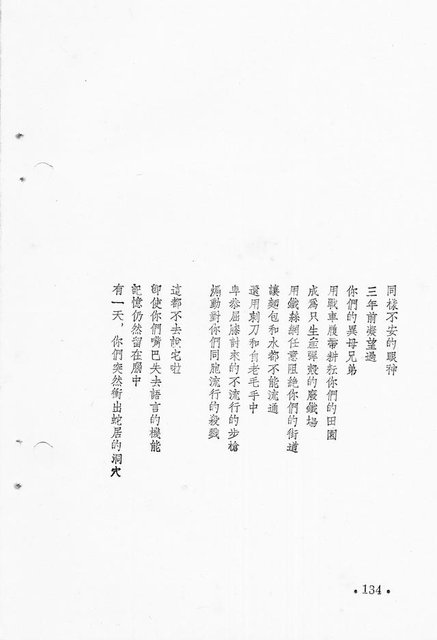 同樣不安的眼神
三年前凝望過
你們的異母兄弟
用戰車履帶耕耘你們的田園
成為只生產彈殼的廢鐵場
用鐵絲網任意阻絕你們的街道
讓麵包和水都不能流通
還用刺刀和自老毛手中
卑恭屈膝討來的不流行的步槍
煽動對你們同胞流行的殺戮
這都不去說它啦
即使你們嘴巴失去語言的機能
記憶仍然留在層中
有一天，你們突然衝出蛇居的洞穴
•134•